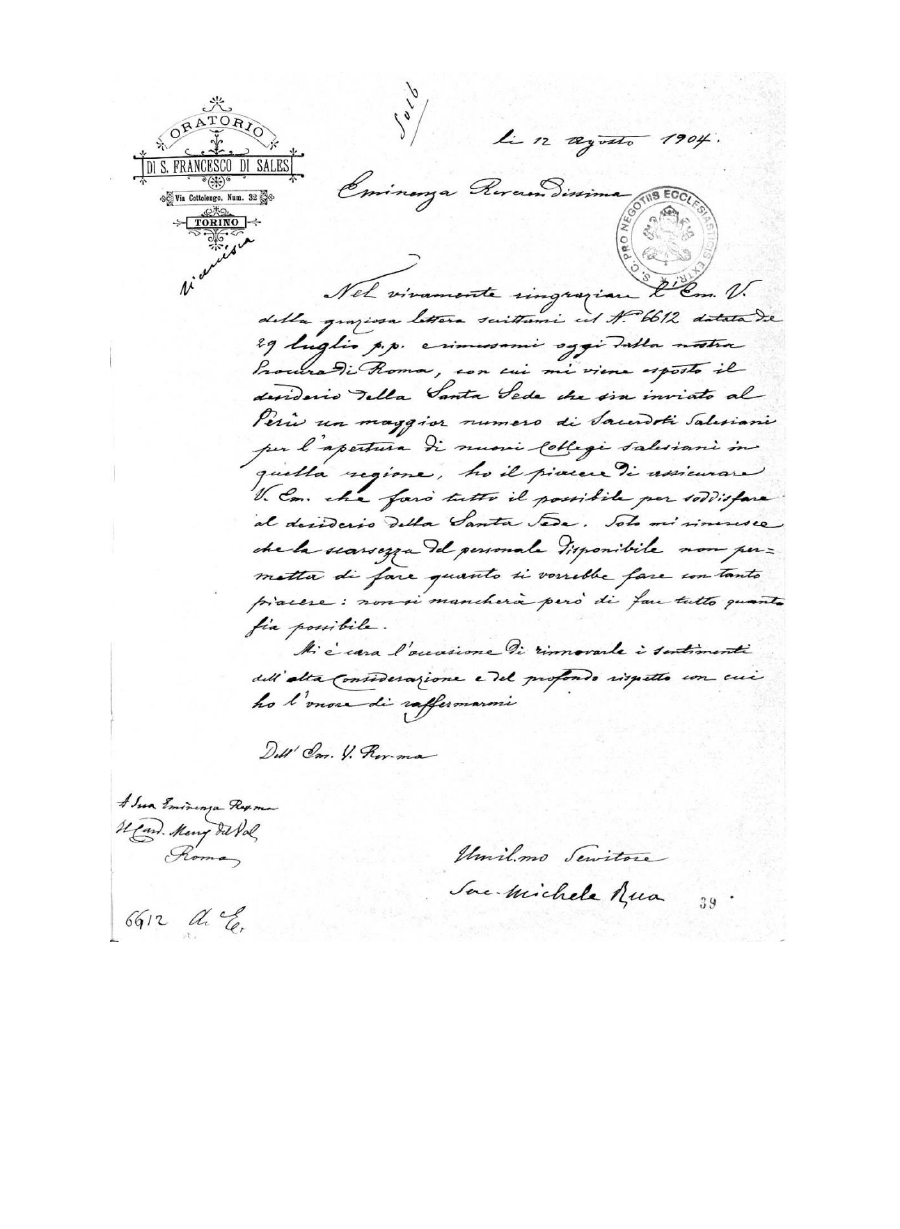 ORATORIO
DI S. FRANCESCO DI SALES
Via Cottolengo, Num. 32
TORINO
li 12 Agosto 1904.
Eminenza Reverendissima
S. C. PRO NEGOTIIS ECCLESIASTICIS EXTR.
Nel vivamente ringraziare l'Em. V.
della graziosa lettera scrittami col N.° 6612 datata del
29 luglio p.p. e rimessami oggi dalla nostra
Procura di Roma, con cui mi viene esposto il
desiderio della Santa Sede che sia inviato al
Perù un maggior numero di Sacerdoti Salesiani
per l'apertura di nuovi Collegi Salesiani in
quella regione, ho il piacere di assicurare
V. Em. che farò tutto il possibile per soddisfare
al desiderio della Santa Sede. Solo mi rincresce
che la scarsezza del personale disponibile non per=
metta di fare quanto si vorrebbe fare con tanto
piacere: non si mancherà però di fare tutto quanto
fia possibile.
Mi è cara l'occasione di rinnovarle i sentimenti
dell'alta considerazione e del profondo rispetto con cui
ho l'onore di raffermarmi
Dell' Em. V. Rev.ma
A Sua Eminenza Rev.ma
Il Card. Merry del Val
Roma
Umil.mo Servitore
Sac. Michele Rua
39
6612